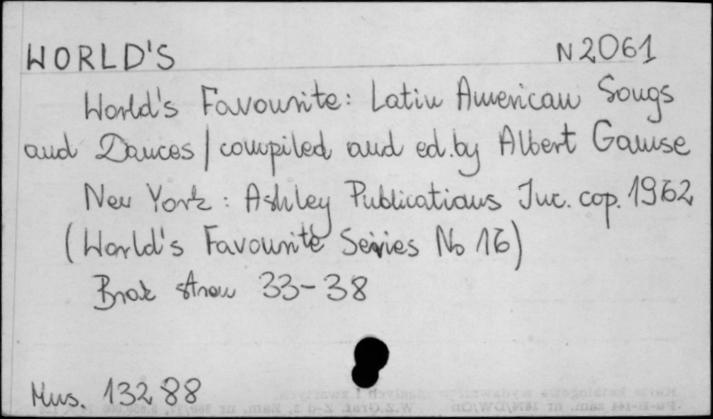 WORLD'S N2061
World's Favourite: Latin American Songs
and Dances / compiled and ed. by Albert Gamse
New York : Ashley Publications Inc. cop. 1962
(World's Favourite Series No 16)
Brak stron 33-38
Mus. 13288